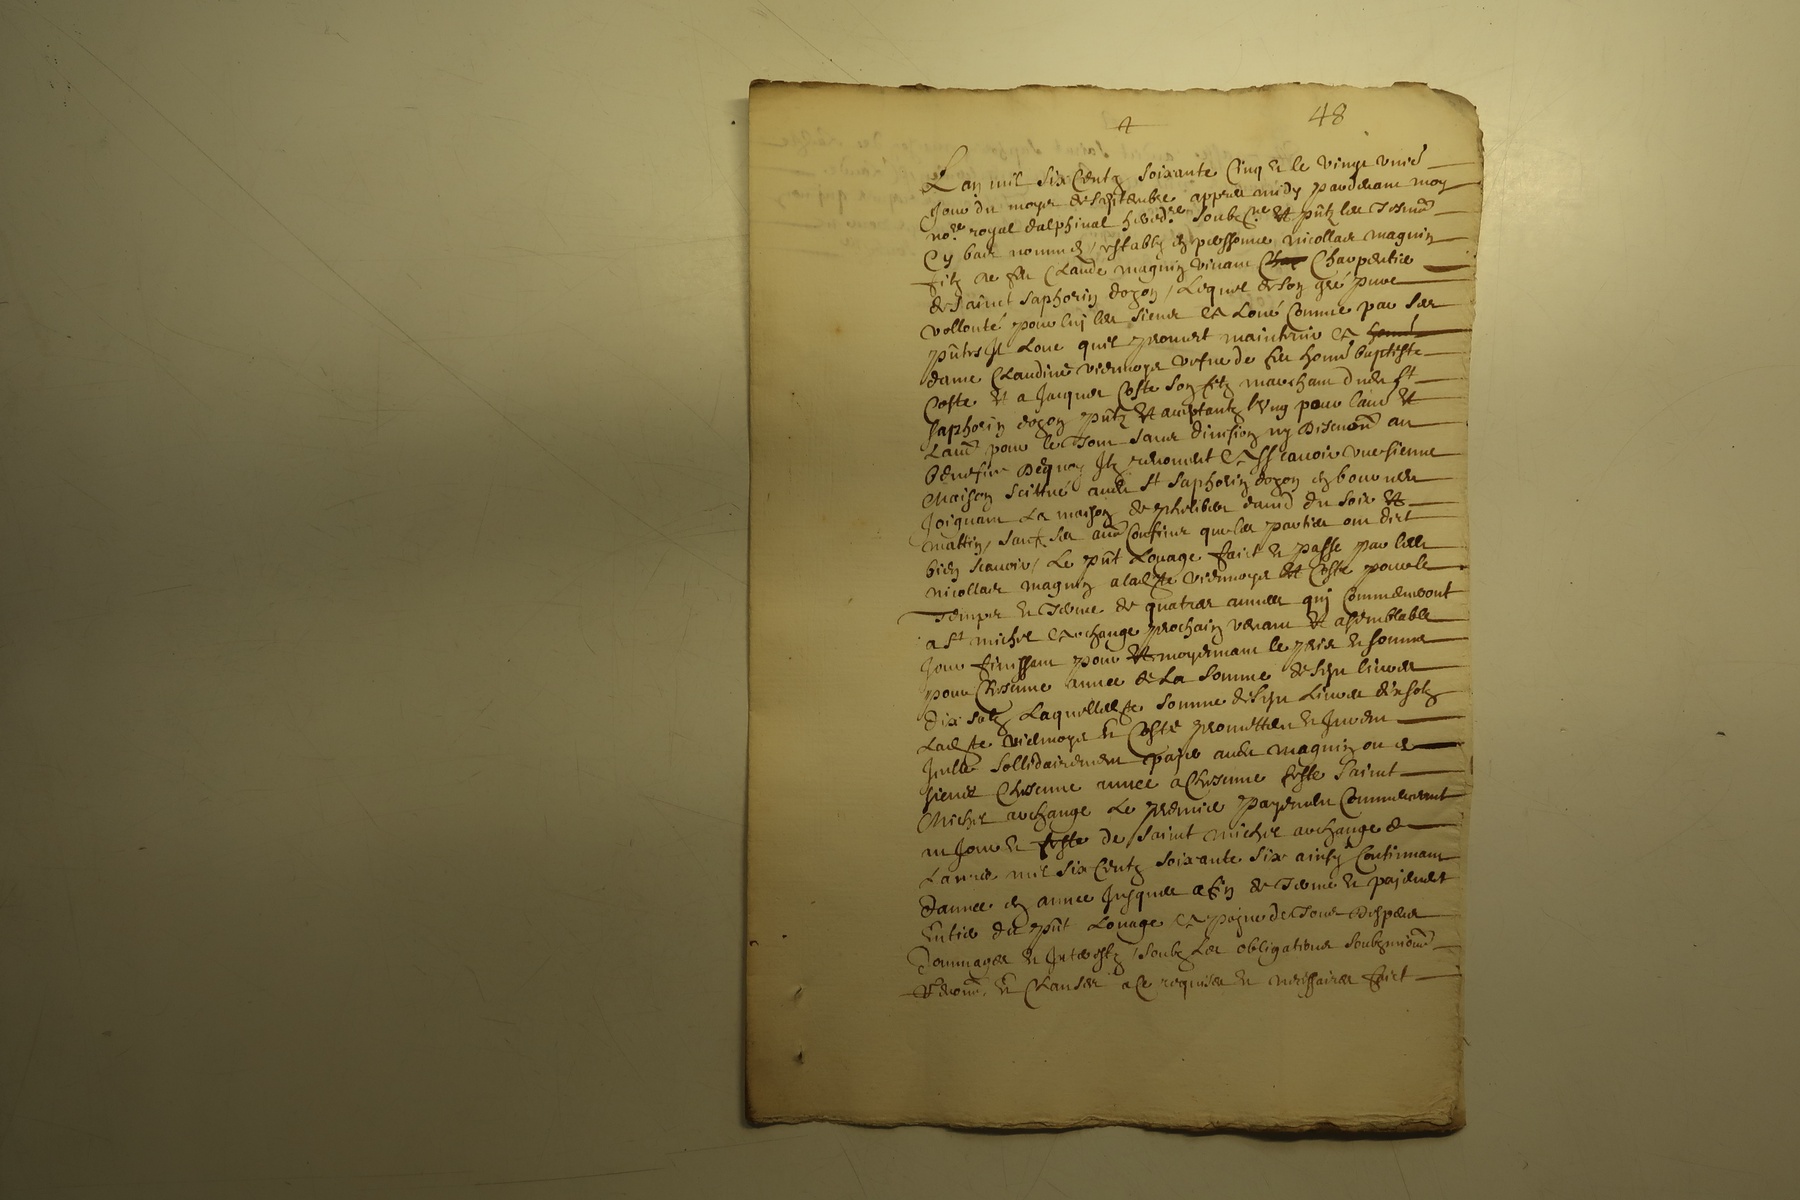 48
Lan mil six Centz soixante Cinq et le vingt unie
Jour du moys de septembre appres midy pardevant moy
no.re royal dalphinal hered.re soubz.ne et pntz les tesm
Cy bas nommes, estably en personne nicollas magnin
filz de feu Claude magnin vivant Charpentier
de sainct saphorin dozon, Lequel de son gré pure
vollonté pour luj les siens a Loué Comme par ses
pntes Jl Loue quil promet maintenir a
dame Claudine viennoys vefve de feu honn baptiste
Coste et a Jacques Coste son filz marchant dud st
saphorin dozon pntz et acceptantz lung pour lau et
Lau pour le Tout sans division ny discution au
benefice Desquoy Jlz renoncent Assçavoir une sienne
Maison scittué aud st saphorin dozon
Joignant La maison de david du soir et
mattin, sauf ses au Confins que les parties ont dict
bien scavoir, Le pnt Louage faict et passe par led
nicollas magnin a lad viennoys et Coste pour le
Temps et Terme de quatre annees quj Commenceront
a st michel archange prochain venant et a semblable
Jour finissant pour et moyennant le prix et somme
pour Chescune annee de La somme de sept livres
dix solz Laquelle somme de sept Livres dix solz
Lad viennoys et Coste promettent et
sollidairement payer aud magnin ou
siens Chescune annee a Chescune feste saint
Michel archange Le premier payement Commencent
au Jour et feste de saint michel archange de
Lannee mil six Centz soixante six ainsy Continuant
Dannee en annee Jusques a fin de Terme et payement
entier du pnt Louage A poyne de Tous despens
Dommages et Interestz, soubz Les obligations
et Clauses a Ce requises et necessaires faict